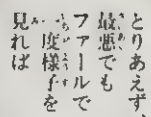 とりあえず、
最悪でも
ファールで
一度様子を
見れば